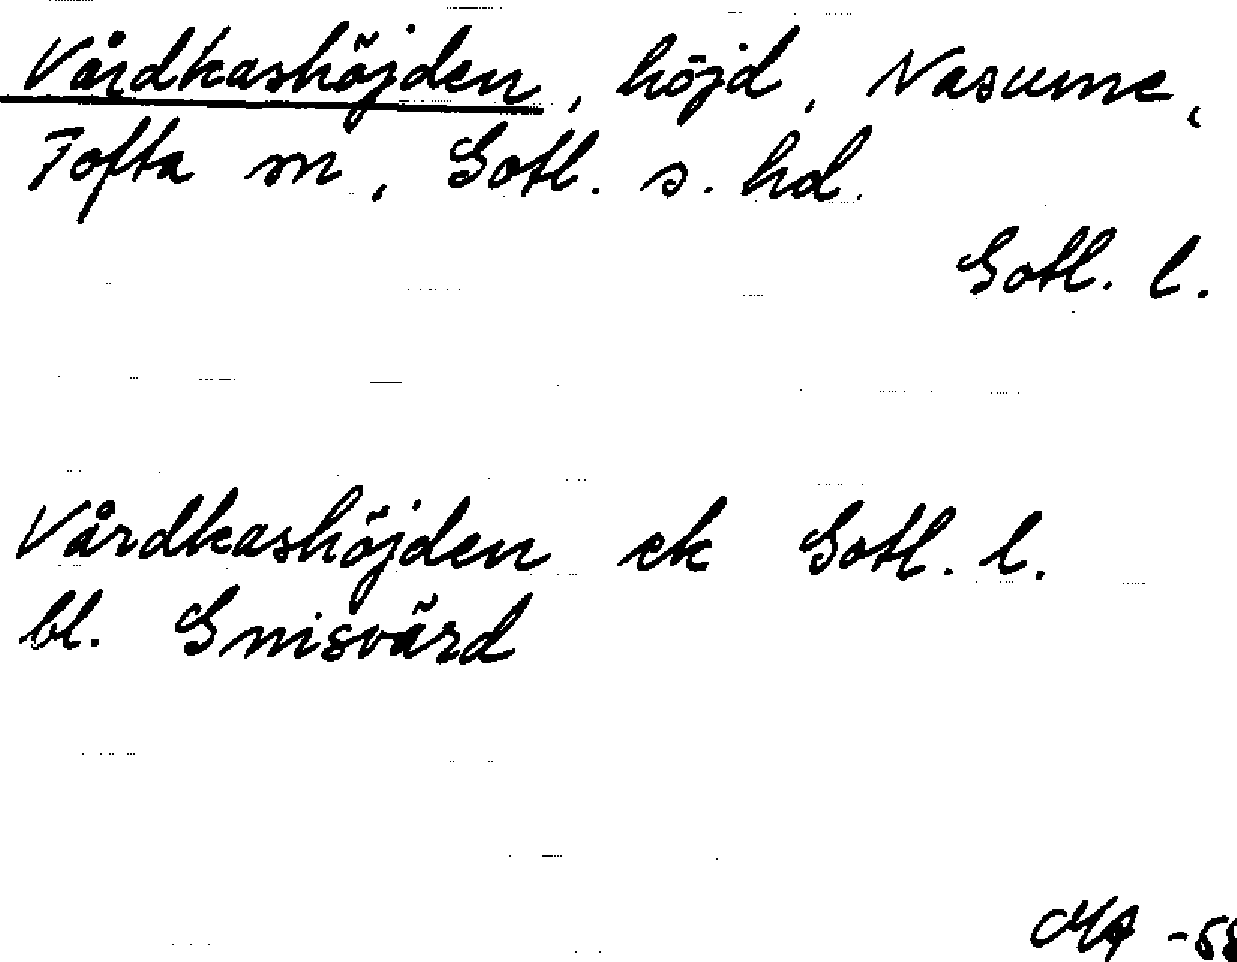 Vårdkashöjden, höjd, Nasume,
Tofta sn, Gotl. s. hd.
Gotl. l.
Vårdkashöjden ek Gotl. l.
bl. Gnisvärd